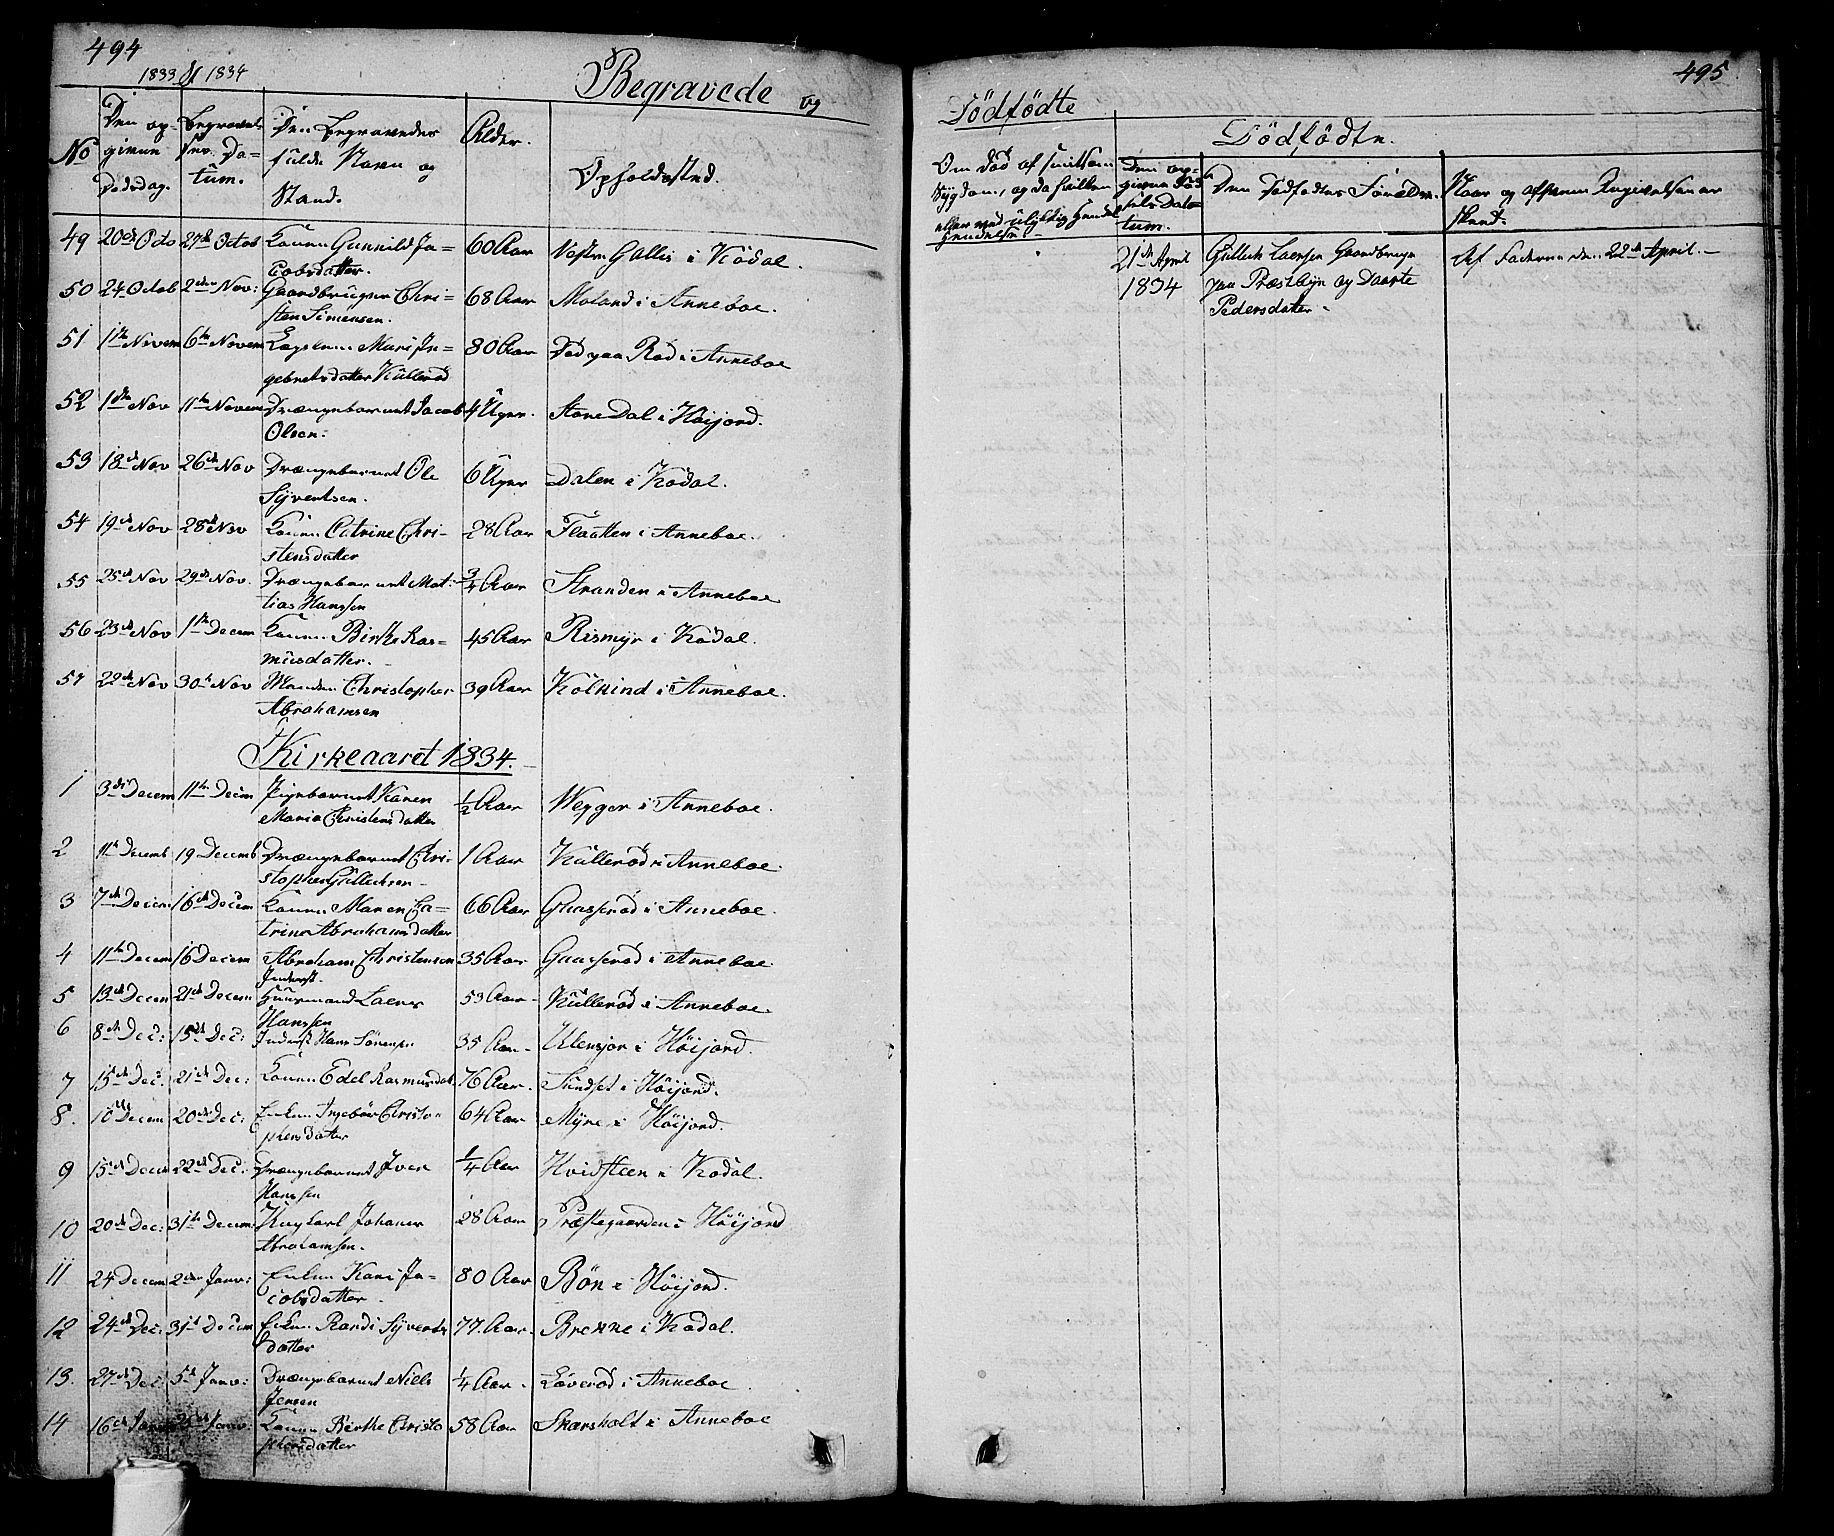 494
1833 & 1834
Begravede og
No
Den op-
givne
Dødsdag.
Begravel-
sens Da-
tum.
Den Begravedes
fulde Navn og
Stand.
Alder.
Opholdssted.
49 20de Octo 27de Octob Konen Gunnild Ja-
cobsdatter. 60 Aar Vestre Gallis i Kodal.
50 24 Octob 2den Nov: Gaardbruger Chri-
sten Simensen. 68 Aar Moland i Anneboe.
51 1ste Novem 6te Novem Mari In-
gebretsdatter Küllerød 80 Aar Død paa Rød i Anneboe
52 1ste Nov 11te Novem Drængebarnet Jacob
Olsen. 4 Uger. Store Dal i Høijord.
53 18de Nov 26de Nov Drængebarnet Ole
Syvertsen. 6 Uger Dalen i Kodal.
54 19de Nov 28de Nov Konen Catrine Chri-
stensdatter 28 Aar Flaatten i Anneboe.
55 25de Nov 29de Nov. Drængebarnet Mat-
tias Hanssen 3/4 Aar Stranden i Anneboe
56 23de Nov 1ste Decem Konen Birthe Ras-
musdatter. 45 Aar Rismyr i Kodal.
57 22de Nov 30te Nov Manden Christopher
Abrahamsen 39 Aar Kolkind i Anneboe.
Kirkeaaret 1834.
1 3die Decem 11te Decem Pigebarnet Karen
Maria Christensdatter 1/2 Aar Wegger i Anneboe.
2 11te Decemb 19 Decemb Drængebarnet Chri-
stopher Gullichsen 1 Aar Küllerød i Anneboe.
3 7de Decem 16de Decem Konen Maren Ca-
trine Abrahamsdatter 66 Aar Gaasserød i Anneboe.
4 11te Decem 16 Decem Abraham Christensen
Inderst. 35 Aar Gaasserød i Anneboe.
5 13de Decem 21de Decem Huusmand Laers
Hanssen 53 Aar Küllerød i Anneboe
6 8de Dec: 15de Dec: Inderst Hans Sörensen 35 Aar Ulensjor i Høijord.
7 15de Dec. 21de Dec: Konen Edel Rasmusdat. 76 Aar. Sundset i Høijord.
8. 10de Decem 20de Dec: Enken Ingebör Christo-
phersdatter 64 Aar Myre i Høijord.
9 15de Decem 22de Dec: Drængebarnet Iver
Hanssen 1/4 Aar Hvidsteen i Kodal.
10 20de Dec: 31te Decem: Ungkarl Johanes
Abrahamsen. 28 Aar Præstegaarden i Høijord
11 24 Decem 2den Janv: Enken Kari Ja-
cobsdatter 80 Aar Bøn i Høijord.
12 24de Dec: 31te Decem Enken Randi Syverts
datter 77. Aar. Brenne i Kodal.
13. 27de Dec: 5te Janv: Drængebarnet Niels
Jensen 1/4 Aar. Løverød i Anneboe
14 16de Janv: Konen Birthe Christo
phersdatter 58 Aar Skarsholt i Anneboe
495
Dödfödte
Dödfödte.
Om død af smitsom
Sygdom, og da hvilken
eller ved ulykkelig Hendel
Hendelse.
Den op-
givne Fød-
sels Da-
tum.
Den Dødfødtes Forældre.
Naar og af hvem Angivelsen er
skeed.
21de April
1834
Gullich Laersen Gaardbruger
paa Præstbyn og Daarte
Pedersdatter
Af Faderen den 22de April.